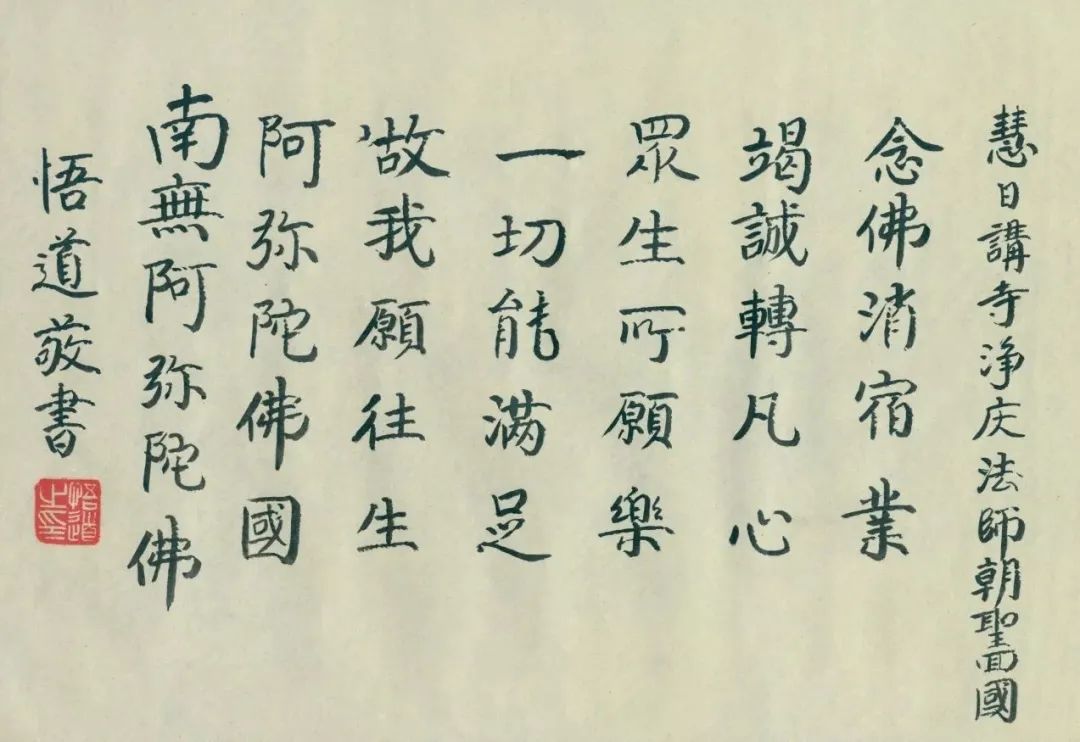 慧日講寺淨庆法師朝聖回國
念佛消宿業
竭誠轉凡心
眾生所願樂
一切能滿足
故我願往生
阿弥陀佛國
南無阿弥陀佛
悟道敬書
悟道之印